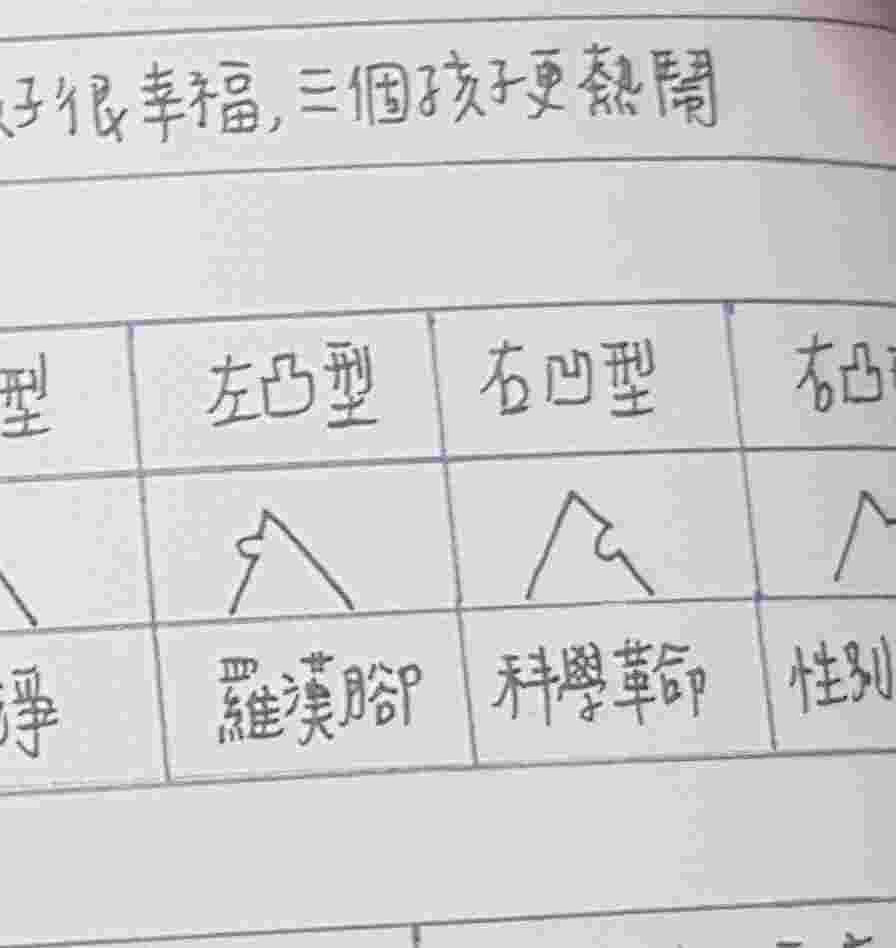 子很幸福,三個孩子更熱鬧
型 左凸型 右凹型 右凸
淨 羅漢腳 科學革命 性別